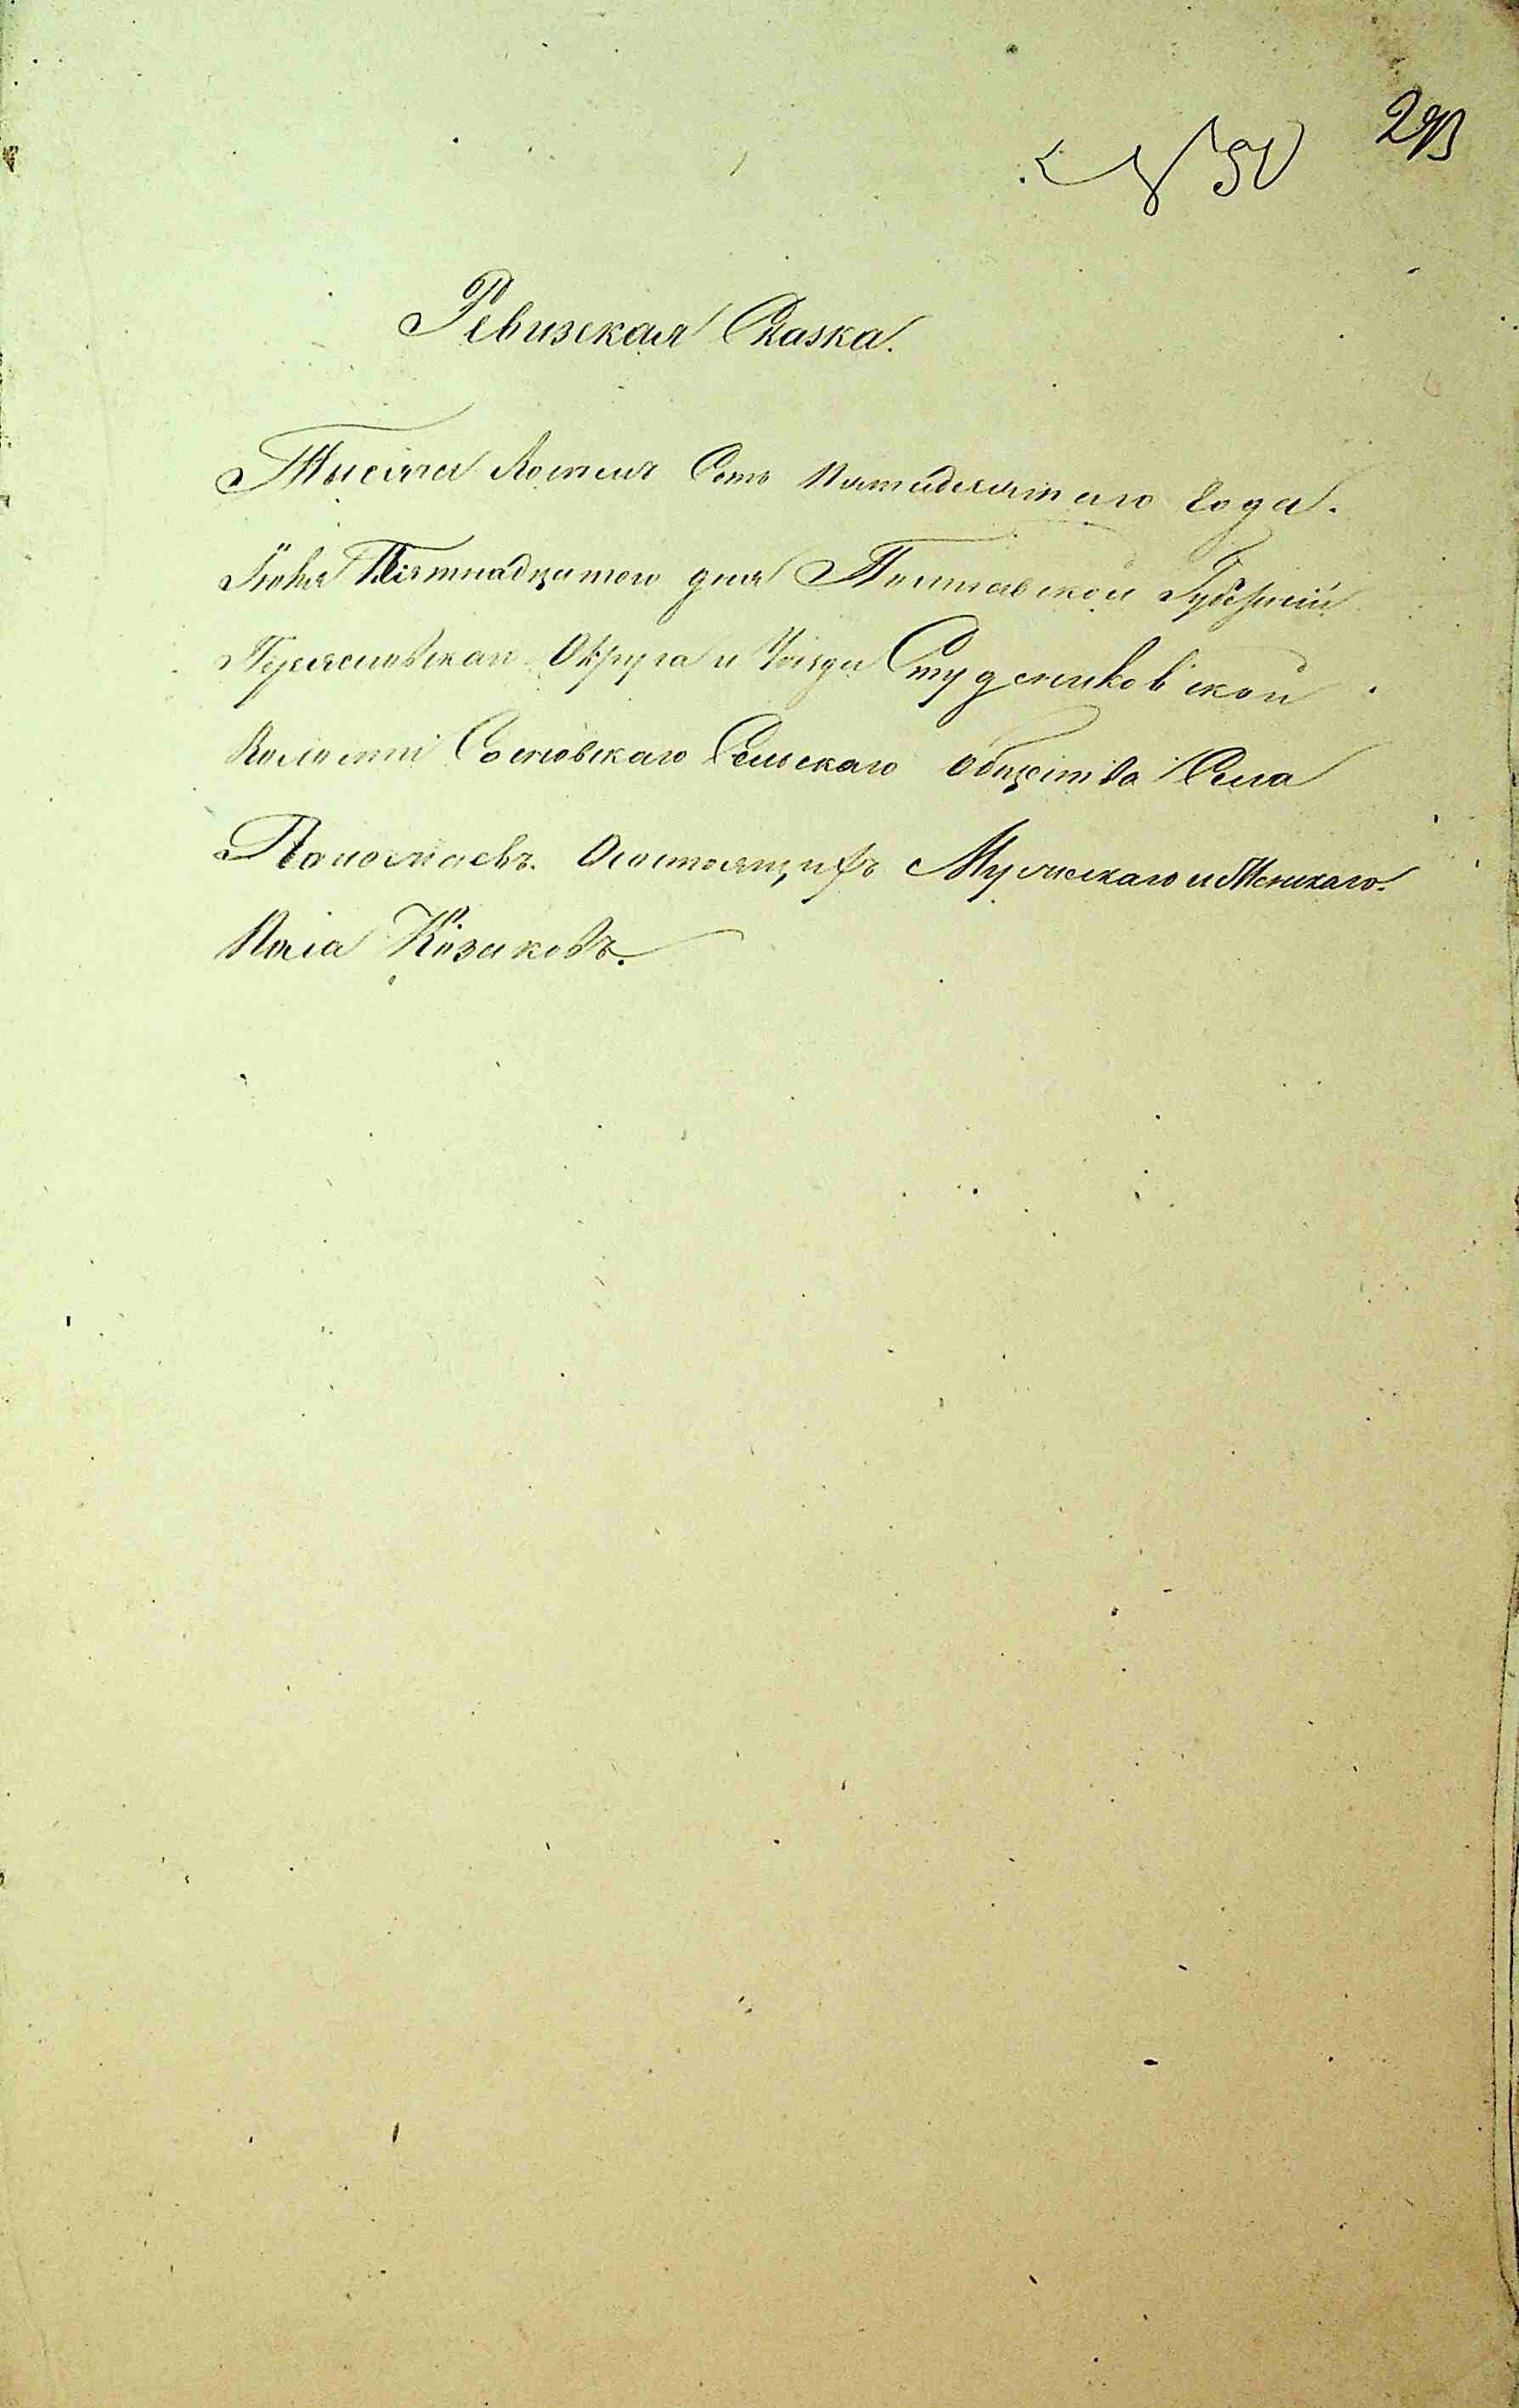 293
№ 50
Ревизская Сказка.
Тысяча Восемъ Сотъ Пятидесятаго Года.
Іюня Пятнадцатого дня Полтавской Губерніи
Переяславскаго Округа и Уезда Студениковской
Волости Сосновскаго Сельскаго Общества Села
Состоящихъ Мужскаго и Женскаго
Пола Козаковъ.